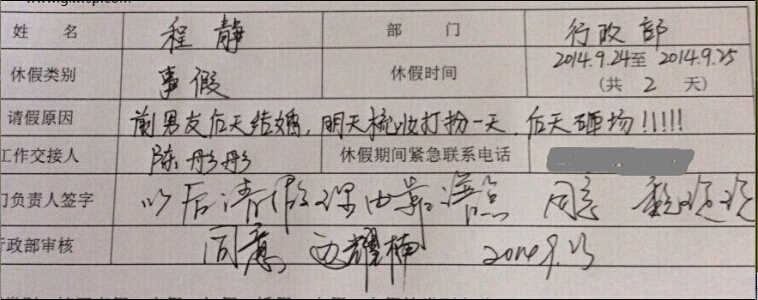 姓 名 程静 部 门 行政部
休假类别 事假 休假时间 2014.9.24至2014.9.25
(共 2 天)
请假原因 前男友后天结婚,明天梳妆打扮一天,后天砸场!!!!!
工作交接人 陈彤彤 休假期间紧急联系电话
门负责人签字 以后请假理由靠谱点 同意
行政部审核 同意 耀楠 2014.9.23